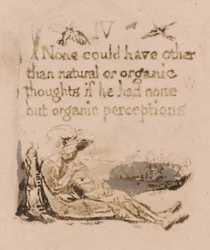 IV
None could have other
than natural or organic
thoughts if he had none
but organic perceptions